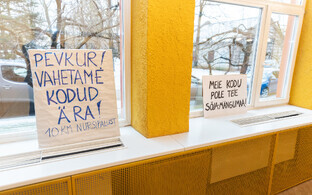 PEVKUR!
VAHETAME
KODUD
ÄRA!
10 KM NURSIPALUST
MEIE KODU
POLE TEIE
SÕJAMÄNGUMAA!